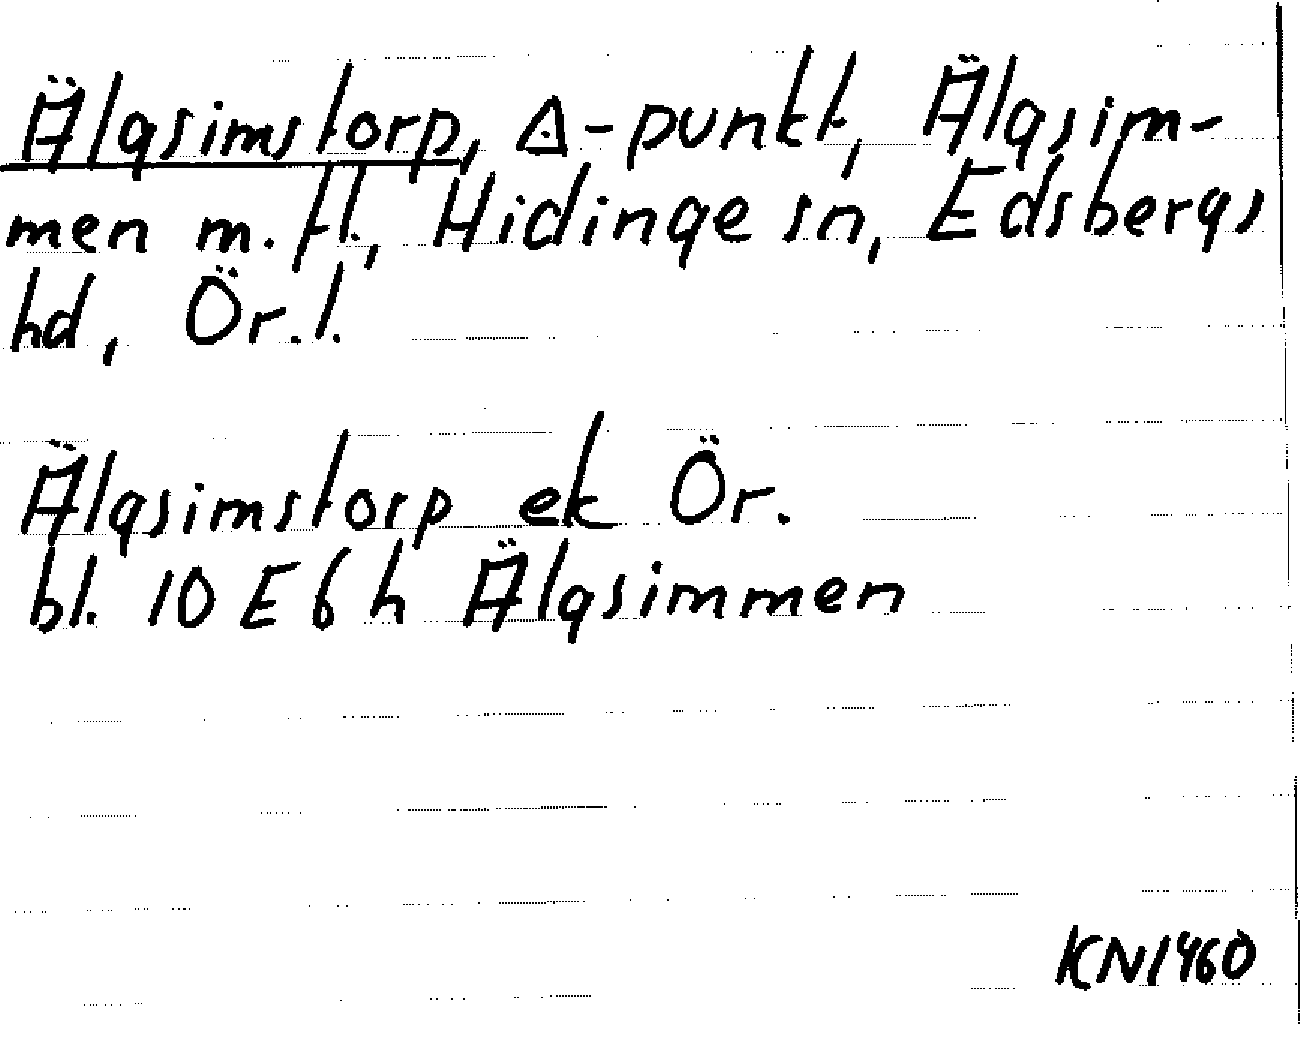 Älgsimstorp, Δ-punkt, Älgsim-
men m. fl., Hidinge sn, Edsbergs
hd, Ör. l.
Älgsimstorp ek Ör.
bl. 10 E 6 h Älgsimmen
KN1960